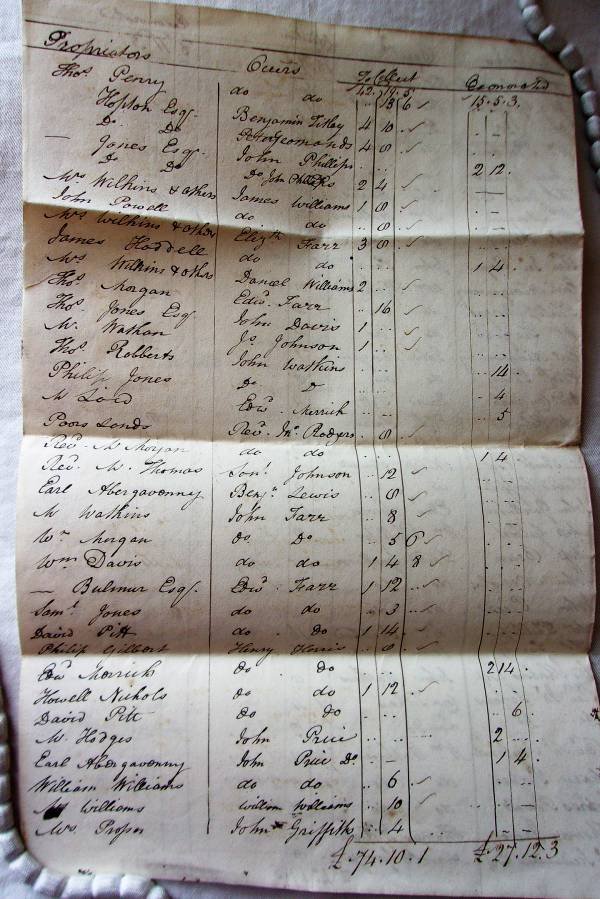 Propriators Ocurs To Collect Exonorated
42. 19. 5 15. 5. 3.
Thos. Perry do do .. 18 6
Hopton Esq. Benjamin Titley 4 10 ..
Do. Do Peter Yeomonds 4 8 ..
— Jones Esq. John Phillips 2 12.
Do Do Do John Phillips 2 4 ..
Mrs Wilkins & others James Williams 1 8 .
John Powell do do .. 8 ..
Mrs Wilkins & others Elizth Farr 3 8 ..
James Haddell do do 1 4 .
Mrs Wilkins & others Daniel Williams 2 ..
Thos. Morgan Edwd. Farr .. 16 ..
Thos. Jones Esq. John Davis 1 ..
M. Wathan Js Johnson 1 ..
Thos. Robberts John Watkins .. 14 .
Philip Jones Do D .. 4
M Lord Edwd. Merrick .. 5
Poors Lands Revd. Jno. Rodgers .. 8 ..
Revd. M Morgan do do 1 4
Revd. M. Thomas Johnson .. 12 ..
Earl Abergavenny Benjn. Lewis .. 8 ..
M Watkins John Farr .. 8 ..
Wm. Morgan do Do .. 5 6
Wm Davis do do 1 4 8
— Bulmur Esq. Edwd. Farr 1 12 ..
Saml. Jones do do .. 3 ..
David Pitt do Do 1 14 .
Philip Gilbert Henry Harris .. 8 ..
Edwd Merrick Do Do 2 14 .
Howell Nichols Do do 1 12 ..
David Pitt Do do .. 6 .
M. Hodges John Price 2 ..
Earl Abergavenny John Price Do 1 4 .
William Williams do do .. 6 ..
Williams William Williams .. 10 ..
Mrs. Prosser John Griffiths .. 4 ..
£. 74. 10. 1 £. 27. 12. 3